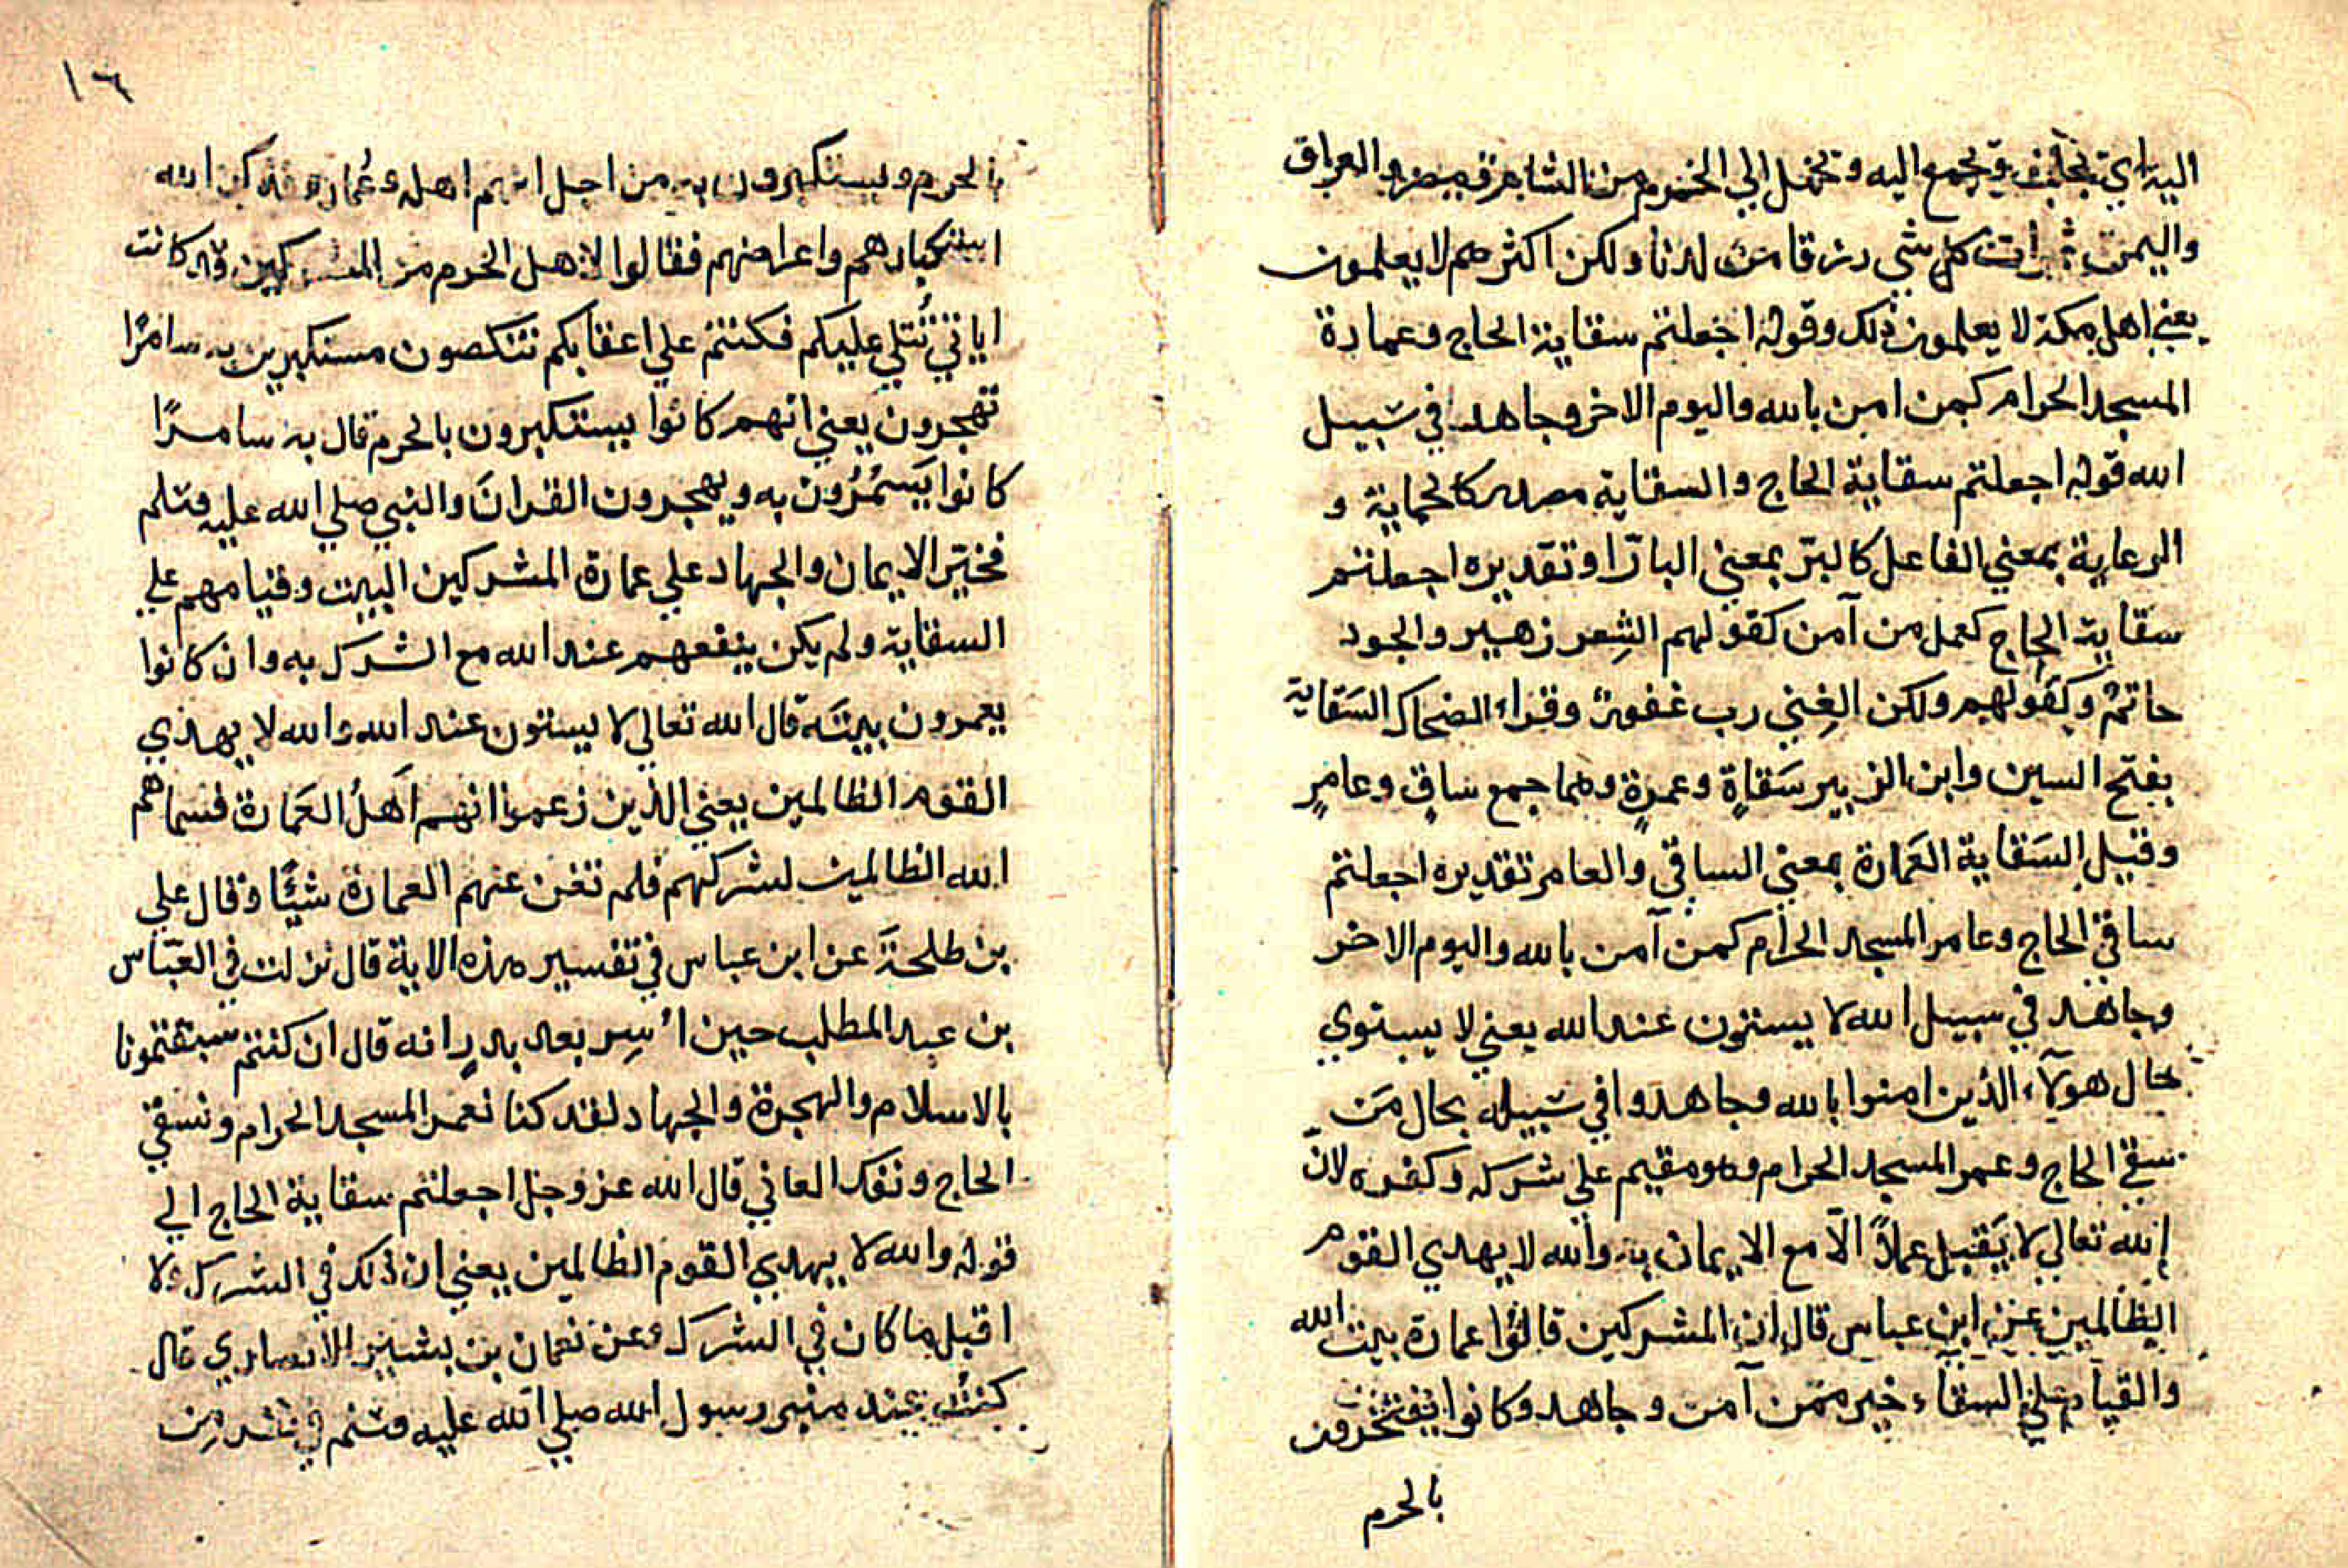 اليه اي تجلب ويجمع اليه وتحمل الي الحرم من الشام ومصر والعراق
واليمن ثمرات كل شي رزقا من لدنا ولكن اكثرهم لا يعلمون
يعني اهل مكة لا يعلمون ذلك وقوله اجعلتم سقاية الحاج وعمارة
المسجد الحرام كمن امن بالله واليوم الاخر وجاهد في سبيل
الله قوله اجعلتم سقاية الحاج والسقاية مصدر كالحماية و
الرعاية بمعني الفاعل كالبرّ بمعني البارّ او تقديره اجعلتم
سقاية الحاج كعمل من آمن كقولهم الشِعر زهير والجود
حاتمٌ وكقولهم ولكن الغِني رب غفورٌ وقراء الضحاك السَقاية
بفتح السين وابن الزبير سَقاةٍ وعمرةٍ وهما جمع ساقٍ وعامرٍ
وقيل السَقاية العَمارة بمعني الساقي والعامر تقديره اجعلتم
ساقي الحاج وعامر المسجد الحرام كمن آمن بالله واليوم الاخر
وجاهد في سبيل الله لا يستون عند الله يعني لا يستوي
حال هولآء الذين امنوا بالله وجاهدوا في سبيله بحال مَن
سقي الحاج وعمر المسجد الحرام وهو مقيم علي شركه وكفره لانّ
الله تعالي لا يَقبل عملاً الّا مع الايمان به والله لا يهدي القوم
الظالمين عن ابن عباس قال ان المشركين قالوا عمارة بيت الله
والقيام علي السقاء خير ممن آمن وجاهد وكانوا يفتخرون
بالحرم
١٦
بالحرم ويستكبرون به من اجل انهم اهله وعُماره فذكر الله
استكبارهم واعراضهم فقالوا لاهل الحرم من المشركين قد كانت
اياتي تُتلي عليكم فكنتم علي اعقابكم تنكصون مستكبرين به سامرًا
تهجرون يعني انهم كانوا يستكبرون بالحرم قال به سامرًا
كانوا يَسمُرُون به ويهجرون القرانَ والنبي صلي الله عليه وسلم
فخيّر الايمان والجهاد علي عمارة المشركين البيت وقيامهم علي
السقاية ولم يكن ينفعهم عند الله مع الشرك به وان كانوا
يعمرون بيتَه قال الله تعالي لا يستون عند الله والله لا يهدي
القوم الظالمين يعني الذين زعموا انهم اَهلُ العَمارة فسماهم
الله الظالمين لشركهم فلم تغن عنهم العمارة شئًا وقال علي
بن طلحةَ عن ابن عباس في تفسير هذه الاية قال نزلت في العبّاس
بن عبد المطلب حين اُسِر بعد بدرٍ انه قال ان كنتم سبقتمونا
بالاسلام والهجرة والجهاد لقد كنا نعمر المسجد الحرام ونسقي
الحاج ونفك العاني قال الله عز وجل اجعلتم سقاية الحاج الي
قوله والله لا يهدي القوم الظالمين يعني ان ذلك في الشرك ولا
اقبل ما كان في الشرك وعن نعمان بن بشير الانصاري قال
كنتُ عند منبر رسول الله صلي الله عليه وسلم في نفر من